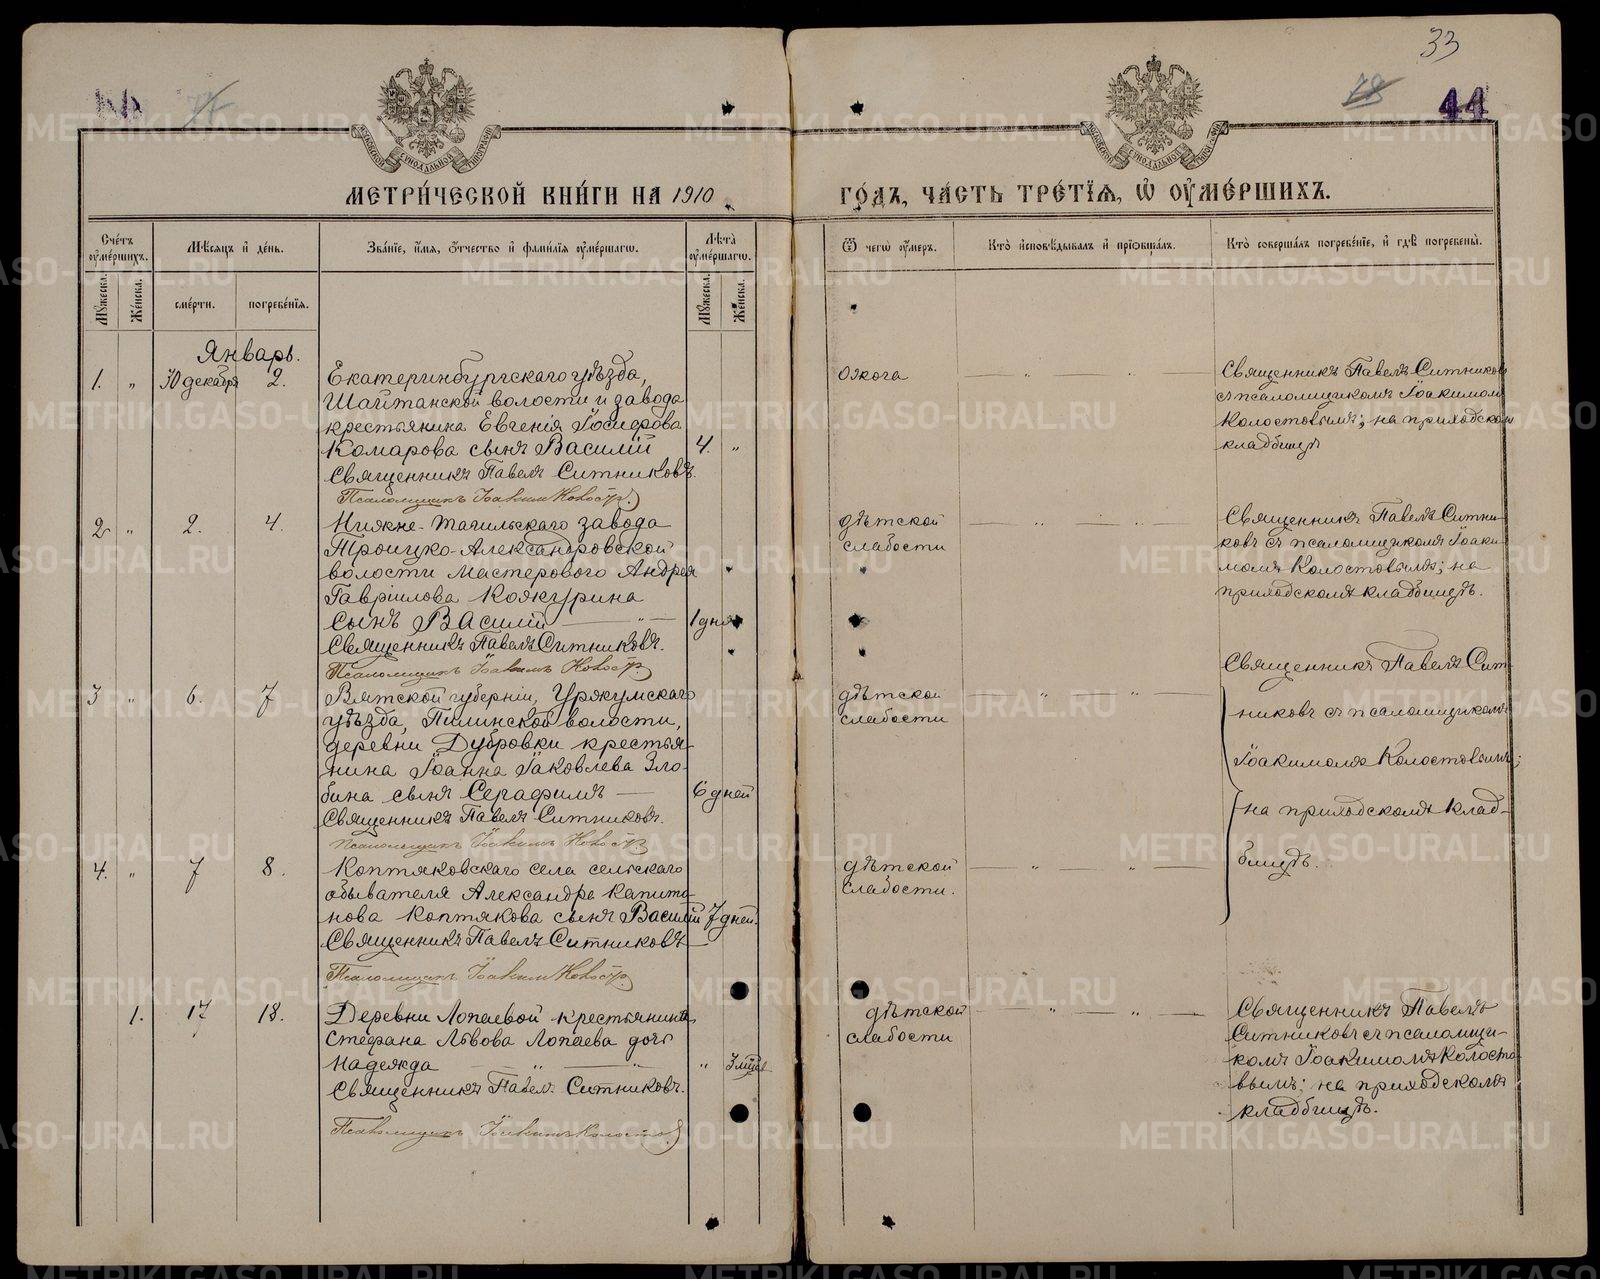 33
78
44
МЕТРИ́ЧЕСКОЙ КНИ́ГИ НА 1910
ГО́ДЪ, ЧА́СТЬ ТРЕ́ТІѦ, Ѡ҆ ОУ҆МЕ́РШИХЪ.
Счéтъ оу҆мéршихъ.
Мѣ́сяцъ и҆ дéнь.
Звáніе, и҆́мя, ѻ҆́тчество и҆ фами́лія оу҆мéршагѡ.
Лѣтà оу҆мéршагѡ.
Ѿ чегѡ̀ оу҆́меръ.
Ктò и҆сповѣ́дывалъ и҆ прїѡбщáлъ.
Ктò совершáлъ погребéніе, и҆ гдѣ̀ погребены̀.
Мꙋ́жеска.
Жéнска.
смéрти.
погребéнїя.
Мꙋ́жеска.
Жéнска.
Январь.
1. „ 30 декабря 2. Екатеринбургскаго уѣзда,
Шайтанской волости и завода
крестьянина Евгенія Іосифова
Комарова сынъ Василій 4. „
Священникъ Павелъ Ситниковъ.
Псаломщикъ Іоакимъ
ожога
Священникъ Павелъ Ситников
съ псаломщикомъ Іоакимом
Колостовымъ; на приходском
кладбищѣ
2 „ 2. 4. Нижне-Тагильскаго завода
Троицко-Александровской
волости мастерового Андрея
Гавриилова Кожурина
сынъ Василій 1 дня
Священникъ Павелъ Ситниковъ.
Псаломщикъ Іоакимъ
дѣтской
слабости
Священникъ Павелъ Ситни-
ковъ съ псаломщикомъ Іоаки-
момъ Колостовымъ; на
приходскомъ кладбищѣ.
3 „ 6. 7 Вятской губерніи, Уржумскаго
уѣзда, Пилинской волости,
деревни Дубровки крестья-
нина Іоанна Іаковлева Зло-
бина сынъ Серафимъ 6 дней
Священникъ Павелъ Ситниковъ.
Псаломщикъ Іоакимъ
дѣтской
слабости
Священникъ Павелъ Сит-
никовъ съ псаломщикомъ
Іоакимомъ Колостовымъ;
на приходскомъ клад-
бищѣ.
4. „ 7 8. Коптяковскаго села сельскаго
обывателя Александра Капито-
нова Коптякова сынъ Василій 7 дней.
Священникъ Павелъ Ситниковъ
Псаломщикъ Іоакимъ
дѣтской
слабости.
1. 17 18. Деревни Лопаевой крестьянина
Стефана Львова Лопаева дочь
Надежда „ 3 мѣс
Священникъ Павелъ Ситниковъ.
Псаломщикъ Іоакимъ
дѣтской
слабости
Священникъ Павелъ
Ситниковъ съ псаломщи-
комъ Іоакимомъ Колосто-
вымъ; на приходскомъ
кладбищѣ.
METRIKI.GASO-URAL.RU